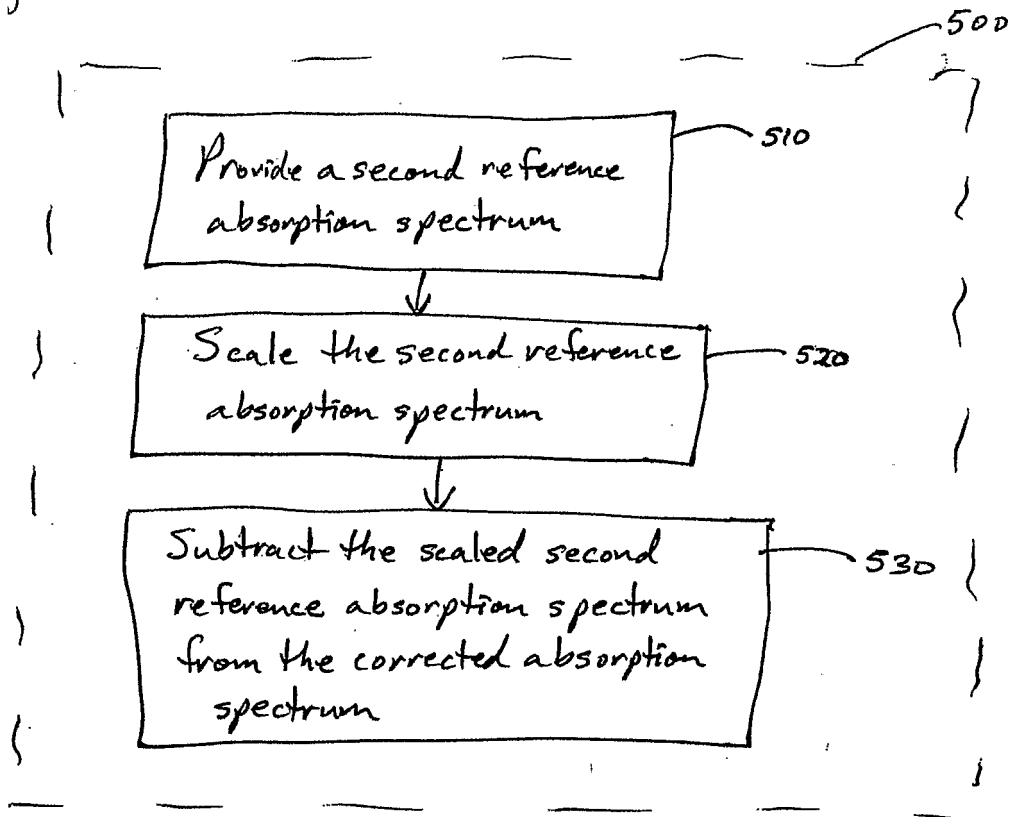 500
Provide a second reference
absorption spectrum
510
Scale the second reference
absorption spectrum
520
Subtract the scaled second
reference absorption spectrum
from the corrected absorption
spectrum
530